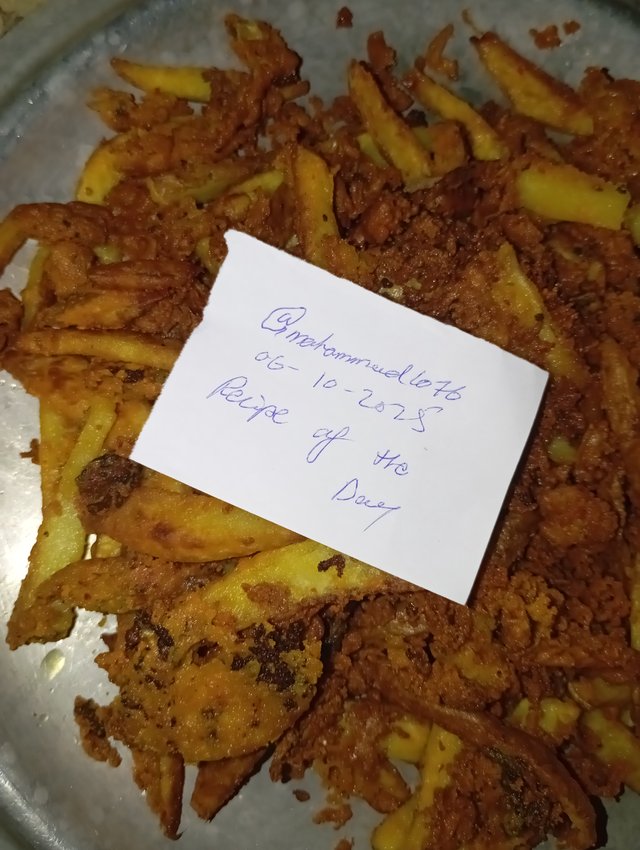 @mohammed1076
06-10-2025
Recipe of the
Day